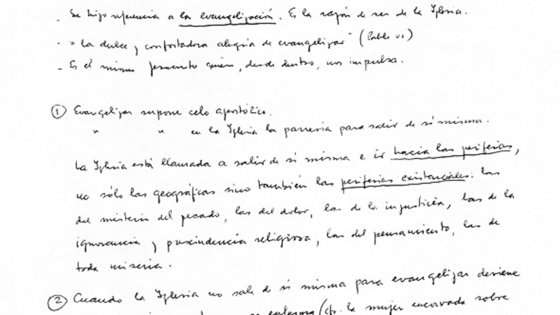 - Se hizo referencia a la evangelización. Es la razón de ser de la Iglesia.
- "La dulce y confortadora alegría de evangelizar" (Pablo VI)
- Es el mismo Jesucristo quien, desde dentro, nos impulsa.
① Evangelizar supone celo apostólico.
" " en la Iglesia la parresía para salir de sí misma.
La Iglesia está llamada a salir de sí misma e ir hacia las periferias,
no sólo las geográficas sino también las periferias existenciales: las
del misterio del pecado, las del dolor, las de la injusticia, las de la
ignorancia y prescindencia religiosa, las del pensamiento, las de
toda miseria.
② Cuando la Iglesia no sale de sí misma para evangelizar deviene
(cfr. la mujer encorvada sobre